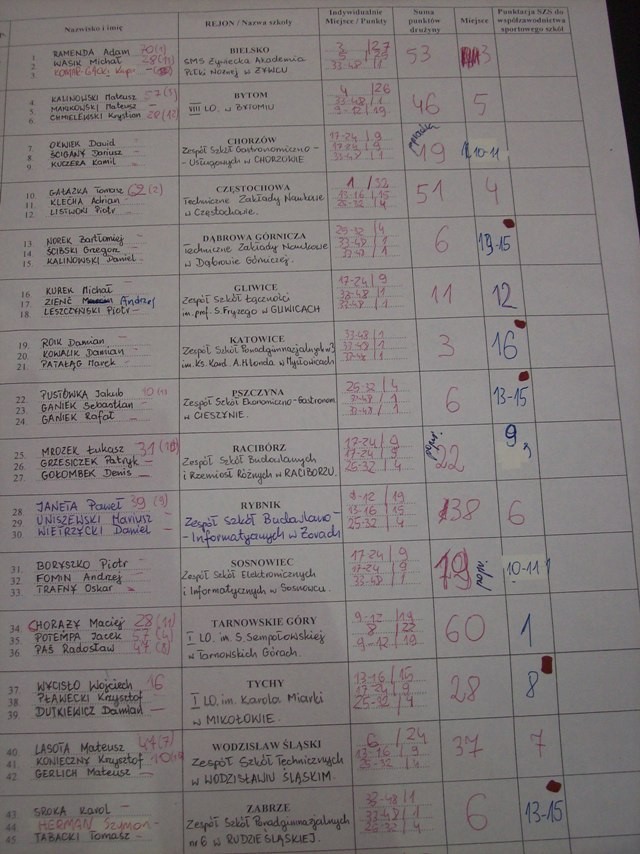 Nazwisko i imię
REJON / Nazwa szkoły
Indywidualnie Miejsce / Punkty
Suma punktów drużyny
Miejsce
Punktacja SZS do współzawodnictwa sportowego szkół
1 RAMENDA Adam
2 WASIK Michał
3
BIELSKO
SMS Żywiecka Akademia
Piłki Nożnej w ŻYWCU
53
3
4. KALINOWSKI Mateusz
5. MARKOWSKI Mateusz
6. CHMIELEWSKI Krystian
BYTOM
VIII LO. w BYTOMIU
4 / 26
33-48 / 1
9-12 / 19
46
5
7. OKWIEK Dawid
8. ŚCIGANY Dariusz
9. KUCZERA Kamil
CHORZÓW
Zespół Szkół Gastronomiczno -
- Usługowych w CHORZOWIE
17-24 / 9
17-24 / 9
33-48 / 1
19
10-11
10. GAŁĄZKA Tomasz 62 (2)
11. KLECHA Adrian
12. LISTWOŃ Piotr
CZĘSTOCHOWA
Techniczne Zakłady Naukowe
w Częstochowie.
1 / 32
13-16 / 15
25-32 / 4
51
4
13. NOREK Bartłomiej
14. ŚCIBSKI Grzegorz
15. KALINOWSKI Daniel
DĄBROWA GÓRNICZA
Techniczne Zakłady Naukowe
w Dąbrowie Górniczej.
25-32 / 4
33-48 / 1
33-48 / 1
6
13-15
16. KUREK Michał
17. ZIENĆ Andrzej
18. LESZCZYŃSKI Piotr
GLIWICE
Zespół Szkół Łączności
im. prof. S. Fryzego w GLIWICACH
17-24 / 9
33-48 / 1
33-48 / 1
11
12
19. ROIK Damian
20. KOWALIK Damian
21. PATAŁĄG Marek
KATOWICE
Zespół Szkół Ponadgimnazjalnych nr 3
im. Ks. Kard. A. Hlonda w Mysłowicach
33-48 / 1
33-48 / 1
33-48 / 1
3
16
22. PUSTÓWKA Jakub
23. GANIEK Sebastian
24. GANIEK Rafał
PSZCZYNA
Zespół Szkół Ekonomiczno-Gastronom.
w CIESZYNIE.
25-32 / 4
33-48 / 1
33-48 / 1
6
13-15
25. MROZEK Łukasz 31 (10)
26. GRZESICZEK Patryk
27. GOŁOMBEK Denis
RACIBÓRZ
Zespół Szkół Budowlanych
i Rzemiosł Różnych w RACIBORZU.
17-24 / 9
17-24 / 9
25-32 / 4
22
9
28. JANETA Paweł 39 (9)
29. UNISZEWSKI Mariusz
30. WIETRZYCKI Daniel
RYBNIK
Zespół Szkół Budowlano -
- Informatycznych w Żorach
9-12 / 19
13-16 / 15
25-32 / 4
38
6
31. BORYSZKO Piotr
32. FOMIN Andrzej
33. TRAFNY Oskar
SOSNOWIEC
Zespół Szkół Elektronicznych
i Informatycznych w Sosnowcu.
17-24 / 9
17-24 / 9
33-48 / 1
19
10-11
34. CHORĄZY Maciej 28 (11)
35. POTEMPA Jacek 57 (4)
36. PAŚ Radosław 47 (8)
TARNOWSKIE GÓRY
I LO. im. S. Sempołowskiej
w Tarnowskich Górach.
9-12 / 19
8 / 22
9-12 / 19
60
1
37. WYCISŁO Wojciech 16
38. PŁAWECKI Krzysztof
39. DUTKIEWICZ Damian
TYCHY
I LO. im. Karola Miarki
w MIKOŁOWIE.
13-16 / 15
17-24 / 9
25-32 / 4
28
8
40. LASOTA Mateusz 47 (7)
41. KONIECZNY Krzysztof
42. GERLICH Mateusz
WODZISŁAW ŚLĄSKI
Zespół Szkół Technicznych
w WODZISŁAWIU ŚLĄSKIM.
6 / 24
17-16 / 9
25-32 / 4
37
7
43. SROKA Karol
44. HERMAN Szymon
45. TABACKI Tomasz
ZABRZE
Zespół Szkół Ponadgimnazjalnych
nr 6 w RUDZIE ŚLĄSKIEJ.
33-48 / 1
33-48 / 1
25-32 / 4
6
13-15